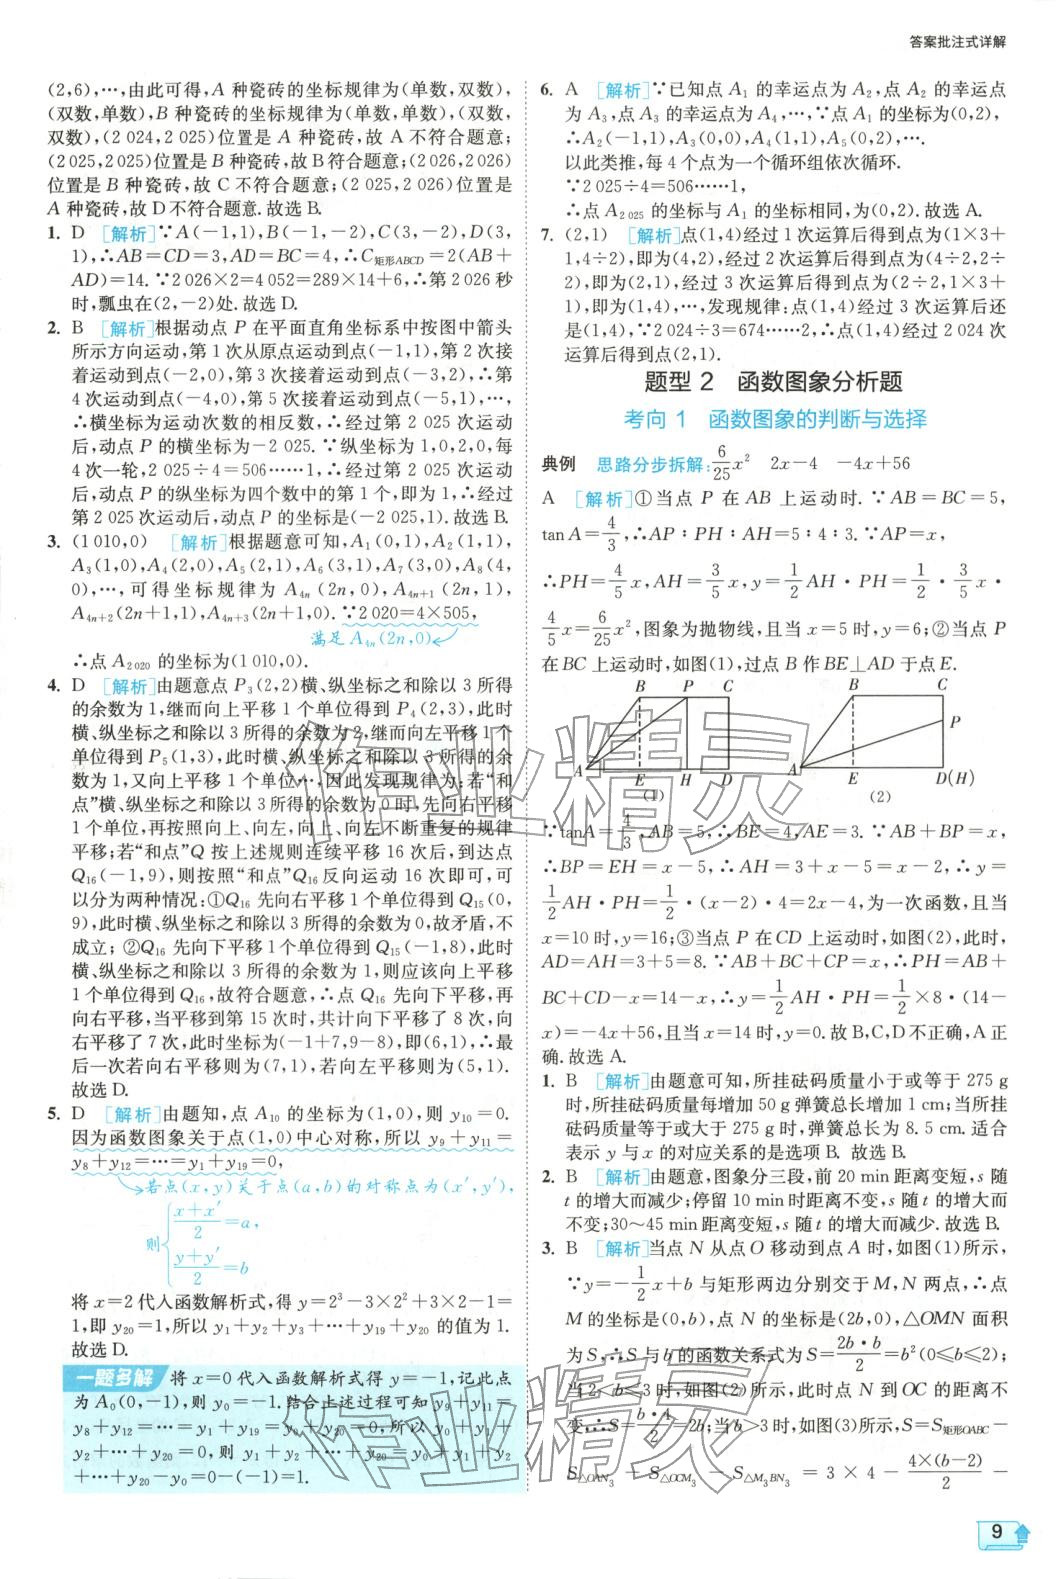 答案批注式详解
(2,6),…,由此可得,A 种瓷砖的坐标规律为(单数,双数),
(双数,单数),B 种瓷砖的坐标规律为(单数,单数),(双数,
双数),(2 024,2 025)位置是 A 种瓷砖,故 A 不符合题意;
(2 025,2 025)位置是 B 种瓷砖,故 B 符合题意;(2 026,2 026)
位置是 B 种瓷砖,故 C 不符合题意;(2 025,2 026)位置是
A 种瓷砖,故 D 不符合题意.故选 B.
1. D [解析]∵A(-1,1),B(-1,-2),C(3,-2),D(3,
1),∴AB=CD=3,AD=BC=4,∴C矩形ABCD=2(AB+
AD)=14.∵2 026×2=4 052=289×14+6,∴第 2 026 秒
时,瓢虫在(2,-2)处.故选 D.
2. B [解析]根据动点 P 在平面直角坐标系中按图中箭头
所示方向运动,第 1 次从原点运动到点(-1,1),第 2 次接
着运动到点(-2,0),第 3 次接着运动到点(-3,2),∴第
4 次运动到点(-4,0),第 5 次接着运动到点(-5,1),…,
∴横坐标为运动次数的相反数,∴经过第 2 025 次运动
后,动点 P 的横坐标为-2 025.∵纵坐标为 1,0,2,0,每
4 次一轮,2 025÷4=506……1,∴经过第 2 025 次运动后,
后,动点 P 的纵坐标为四个数中的第 1 个,即为 1,∴经过
第 2 025 次运动后,动点 P 的坐标是(-2 025,1).故选 B.
3. (1 010,0) [解析]根据题意可知,A₁(0,1),A₂(1,1),
A₃(1,0),A₄(2,0),A₅(2,1),A₆(3,1),A₇(3,0),A₈(4,
0),…,可得坐标规律为 A₄ₙ(2n,0),A₄ₙ₊₁(2n,1),
A₄ₙ₊₂(2n+1,1),A₄ₙ₊₃(2n+1,0).∵2 020=4×505,
满足A₄ₙ(2n,0)
∴点 A₂ ₀₂₀ 的坐标为(1 010,0).
4. D [解析]由题意点 P₃(2,2)横、纵坐标之和除以 3 所得
的余数为 1,继而向上平移 1 个单位得到 P₄(2,3),此时
横、纵坐标之和除以 3 所得的余数为 2,继而向左平移 1 个
单位得到 P₅(1,3),此时横、纵坐标之和除以 3 所得的余数为
1,又向上平移 1 个单位…,因此发现规律为:若“和
点”横、纵坐标之和除以 3 所得的余数为 0 时,先向右平移
1 个单位,再按照向上、向左,向上、向左不断重复的规律
平移;若“和点”Q 按上述规则连续平移 16 次后,到达点
Q₁₆(-1,9),则按照“和点”Q₁₆反向运动 16 次即可,可
以分为两种情况:①Q₁₆ 先向右平移 1 个单位得到 Q₁₅(0,
9),此时横、纵坐标之和除以 3 所得的余数为 0,故矛盾,不
成立;②Q₁₆ 先向下平移 1 个单位得到 Q₁₅(-1,8),此时
横、纵坐标之和除以 3 所得的余数为 1,则应该向上平移
1 个单位得到 Q₁₆,故符合题意,∴点 Q₁₆ 先向下平移,再
向右平移,当平移到第 15 次时,共计向下平移了 8 次,向
右平移了 7 次,此时坐标为(-1+7,9-8),即(6,1),∴最
后一次若向右平移则为(7,1),若向左平移则为(5,1).
故选 D.
5. D [解析]由题知,点 A₁₀ 的坐标为(1,0),则 y₁₀=0.
因为函数图象关于点(1,0)中心对称,所以 y₉+y₁₁=
y₈+y₁₂=…=y₁+y₁₉=0,
若点(x,y)关于点(a,b)的对称点为(x′,y′),
则{(x+x′)/2=a,
(y+y′)/2=b
将 x=2 代入函数解析式,得 y=2³-3×2²+3×2-1=
1,即 y₂₀=1,所以 y₁+y₂+y₃+…+y₁₉+y₂₀ 的值为 1.
故选 D.
一题多解 将 x=0 代入函数解析式得 y=-1,记此点
为 A₀(0,-1),则 y₀=-1.结合上述过程可知 y₉+y₁₁=
y₈+y₁₂=…=y₁+y₁₉=y₀+y₂₀=0,所以 y₀+y₁+
y₂+…+y₂₀=0,则 y₁+y₂+…+y₂₀=y₀+y₁+y₂
+…+y₂₀-y₀=0-(-1)=1.
6. A [解析]∵已知点 A₁ 的幸运点为 A₂,点 A₂ 的幸运点
为 A₃,点 A₃ 的幸运点为 A₄,…,∵点 A₁ 的坐标为(0,2),
∴A₂(-1,1),A₃(0,0),A₄(1,1),A₅(0,2),….
以此类推,每 4 个点为一个循环组依次循环.
∵2 025÷4=506……1,
∴点 A₂ ₀₂₅ 的坐标与 A₁ 的坐标相同,为(0,2).故选 A.
7. (2,1) [解析]点(1,4)经过 1 次运算后得到点为(1×3+
1,4÷2),即为(4,2),经过 2 次运算后得到点为(4÷2,2÷
2),即为(2,1),经过 3 次运算后得到点为(2÷2,1×3+
1),即为(1,4),…,发现规律:点(1,4)经过 3 次运算后还
是(1,4),∵2 024÷3=674……2,∴点(1,4)经过 2 024 次
运算后得到点(2,1).
题型 2 函数图象分析题
考向 1 函数图象的判断与选择
典例 思路分步拆解:6/25x² 2x-4 -4x+56
A [解析]①当点 P 在 AB 上运动时.∵AB=BC=5,
tan A=4/3,∴AP∶PH∶AH=5∶4∶3.∵AP=x,
∴PH=4/5x,AH=3/5x,y=1/2AH·PH=1/2·3/5x·
4/5x=6/25x²,图象为抛物线,且当 x=5 时,y=6;②当点 P
在 BC 上运动时,如图(1),过点 B 作 BE⊥AD 于点 E.
B P C
A E H D
(1)
B C
P
A E D(H)
(2)
∵tanA=4/3,AB=5,∴BE=4,AE=3.∵AB+BP=x,
∴BP=EH=x-5,∴AH=3+x-5=x-2,∴y=
1/2AH·PH=1/2·(x-2)·4=2x-4,为一次函数,且当
x=10 时,y=16;③当点 P 在 CD 上运动,如图(2),此时,
AD=AH=3+5=8.∵AB+BC+CP=x,∴PH=AB+
BC+CD-x=14-x,∴y=1/2AH·PH=1/2×8·(14-
x)=-4x+56,且当 x=14 时,y=0.故 B,C,D 不正确,A 正
确.故选 A.
1. B [解析]由题意可知,所挂砝码质量小于或等于 275 g
时,所挂砝码质量每增加 50 g 弹簧总长增加 1 cm;当所挂
砝码质量等于或大于 275 g 时,弹簧总长为 8.5 cm.适合
表示 y 与 x 的对应关系的是选项 B. 故选 B.
2. B [解析]由题意,图象分三段,前 20 min 距离变短,s 随
t 的增大而减少;停留 10 min 时距离不变,s 随 t 的增大而
不变;30~45 min 距离变短,s 随 t 的增大而减少.故选 B.
3. B [解析]当点 N 从点 O 移动到点 A 时,如图(1)所示,
∵y=-1/2x+b 与矩形两边分别交于 M,N 两点,∴点
M 的坐标是(0,b),点 N 的坐标是(2b,0),△OMN 面积
为 S,∴S 与 b 的函数关系式为 S=2b·b/2=b²(0≤b≤2);
当 2<b≤3 时,如图(2)所示,此时点 N 到 OC 的距离不
变,∴S=b·4/2=2b;当 b>3 时,如图(3)所示,S=S矩形OABC-
S△OAN₃+S△OCM₃-S△M₃BN₃=3×4-4×(b-2)/2-
9
作业精灵
作业精灵